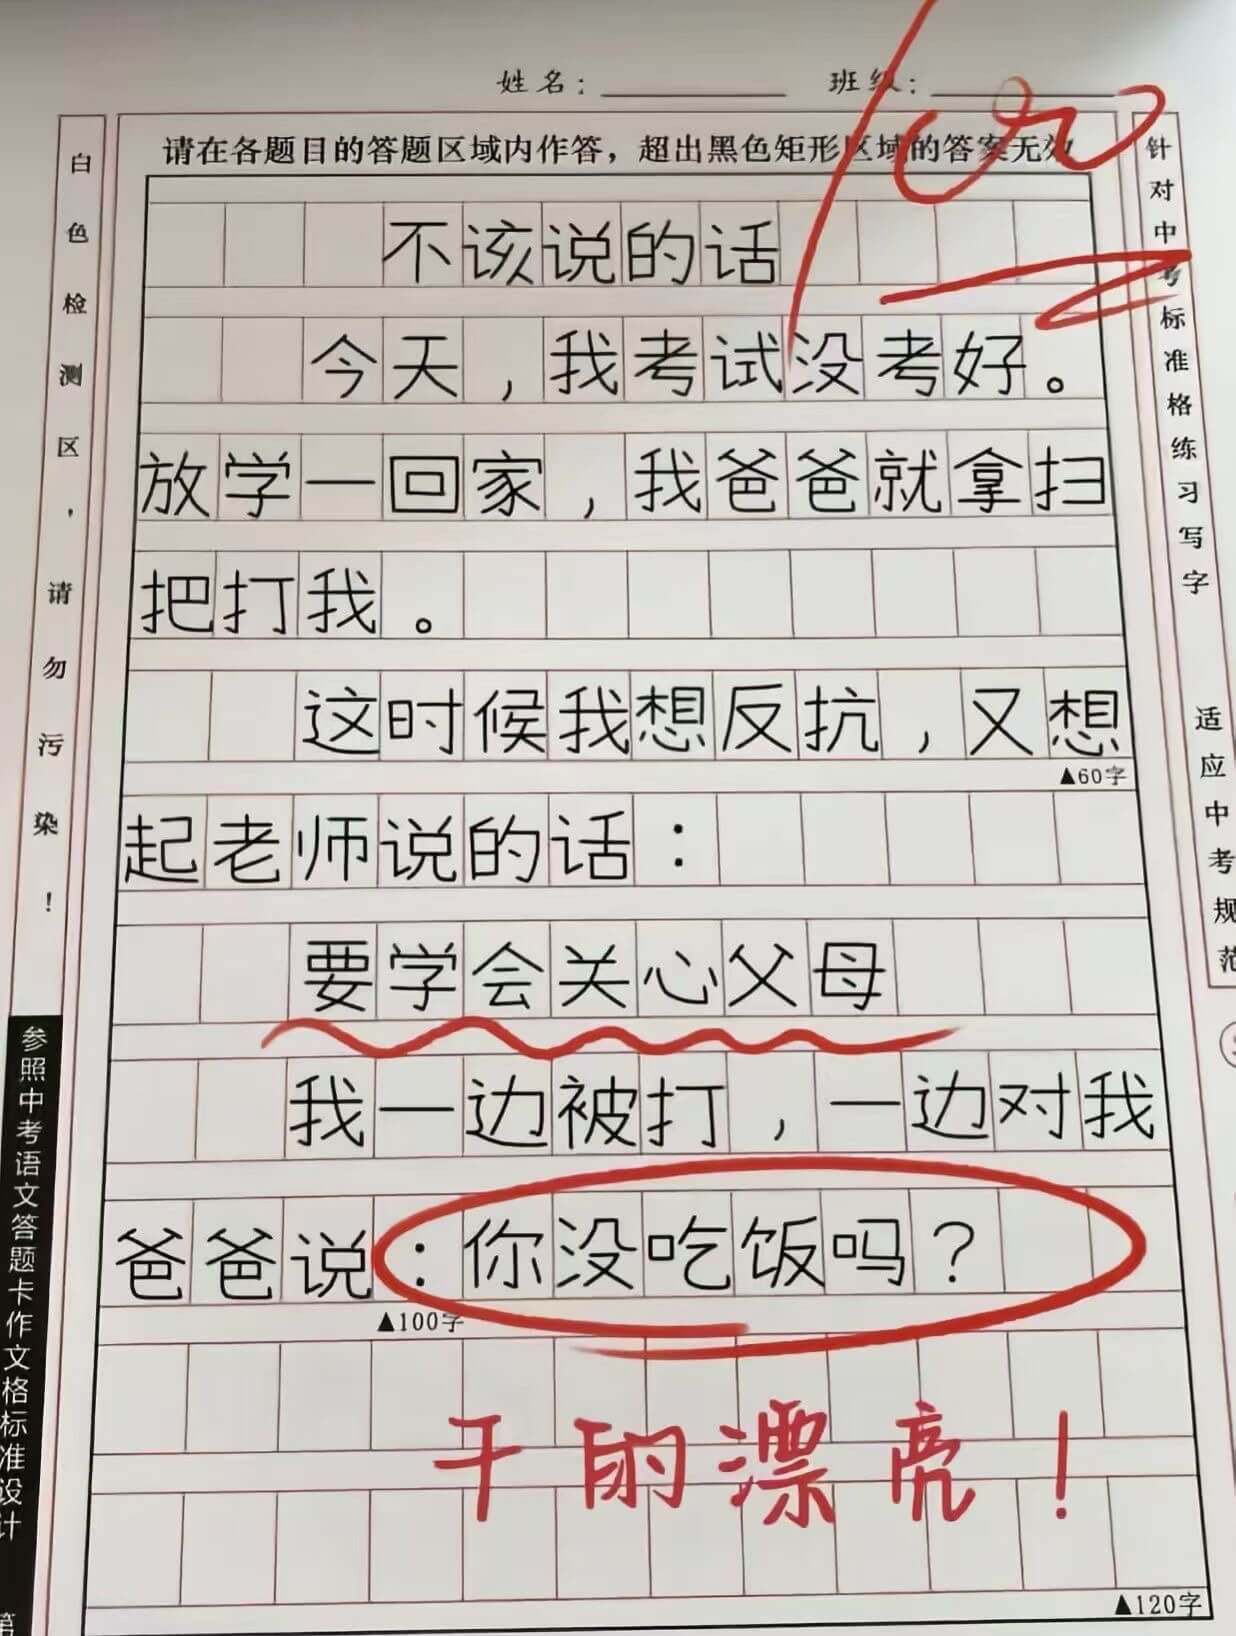 姓名：
班级：
100
请在各题目的答题区域内作答，超出黑色矩形区域的答案无效
不该说的话
今天，我考试没考好。
放学一回家，我爸爸就拿扫
把打我。
这时候我想反抗，又想
▲60字
起老师说的话：
要学会关心父母
我一边被打，一边对我
爸爸说：你没吃饭吗？
▲100字
干的漂亮！
▲120字
白色检测区，请勿污染！
参照中考语文答题卡作文格标准设计
第
针对中考标准格练习写字
适应中考规范